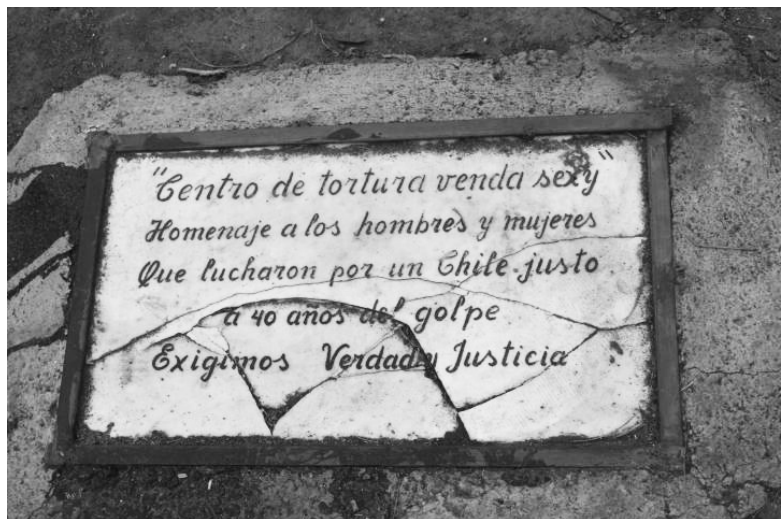 "Centro de tortura venda sexy"
Homenaje a los hombres y mujeres
Que lucharon por un Chile justo
a 40 años del golpe
Exigimos Verdad y Justicia